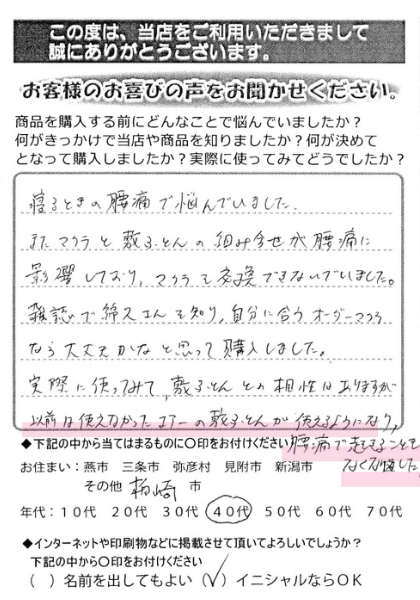 この度は、当店をご利用いただきまして
誠にありがとうございます。
お客様のお喜びの声をお聞かせください。
商品を購入する前にどんなことで悩んでいましたか？
何がきっかけで当店や商品を知りましたか？何が決めて
となって購入しましたか？実際に使ってみてどうでしたか？
寝るときの腰痛で悩んでいました。
またマクラと敷ふとんの組み合せが腰痛に
影響しており、マクラを交換できないでいました。
雑誌で綿元さんを知り、自分に合うオーダーマクラ
なら大丈夫かなと思って購入しました。
実際に使ってみて、敷ふとんとの相性はありますが
以前は使えなかったエアーの敷ふとんが使えるようになり、
◆下記の中から当てはまるものに○印をお付けください
腰痛で起きることも
なくなりました
お住まい：燕市 三条市 弥彦村 見附市 新潟市
その他 柏崎 市
年代：１０代 ２０代 ３０代 ４０代 ５０代 ６０代 ７０代
◆インターネットや印刷物などに掲載させて頂いてよろしいでしょうか？
下記の中から○印をお付けください
（ ）名前を出してもよい（✓）イニシャルならＯＫ